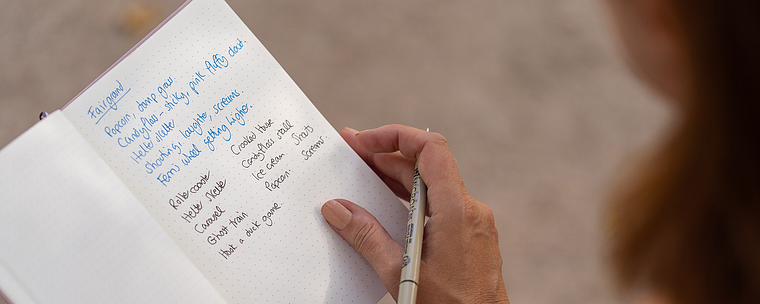 Fairground
Popcorn, damp grass.
Candyfloss - sticky, pink fluffy cloud.
Helter skelter
Shouting, laughter, screams.
Ferris wheel getting higher.
Roller coaster
Helter skelter
Carousel
Ghost train
Hook a duck game.
Crooked House
Candyfloss stall
Ice cream
Popcorn.
Shouts
Screams.